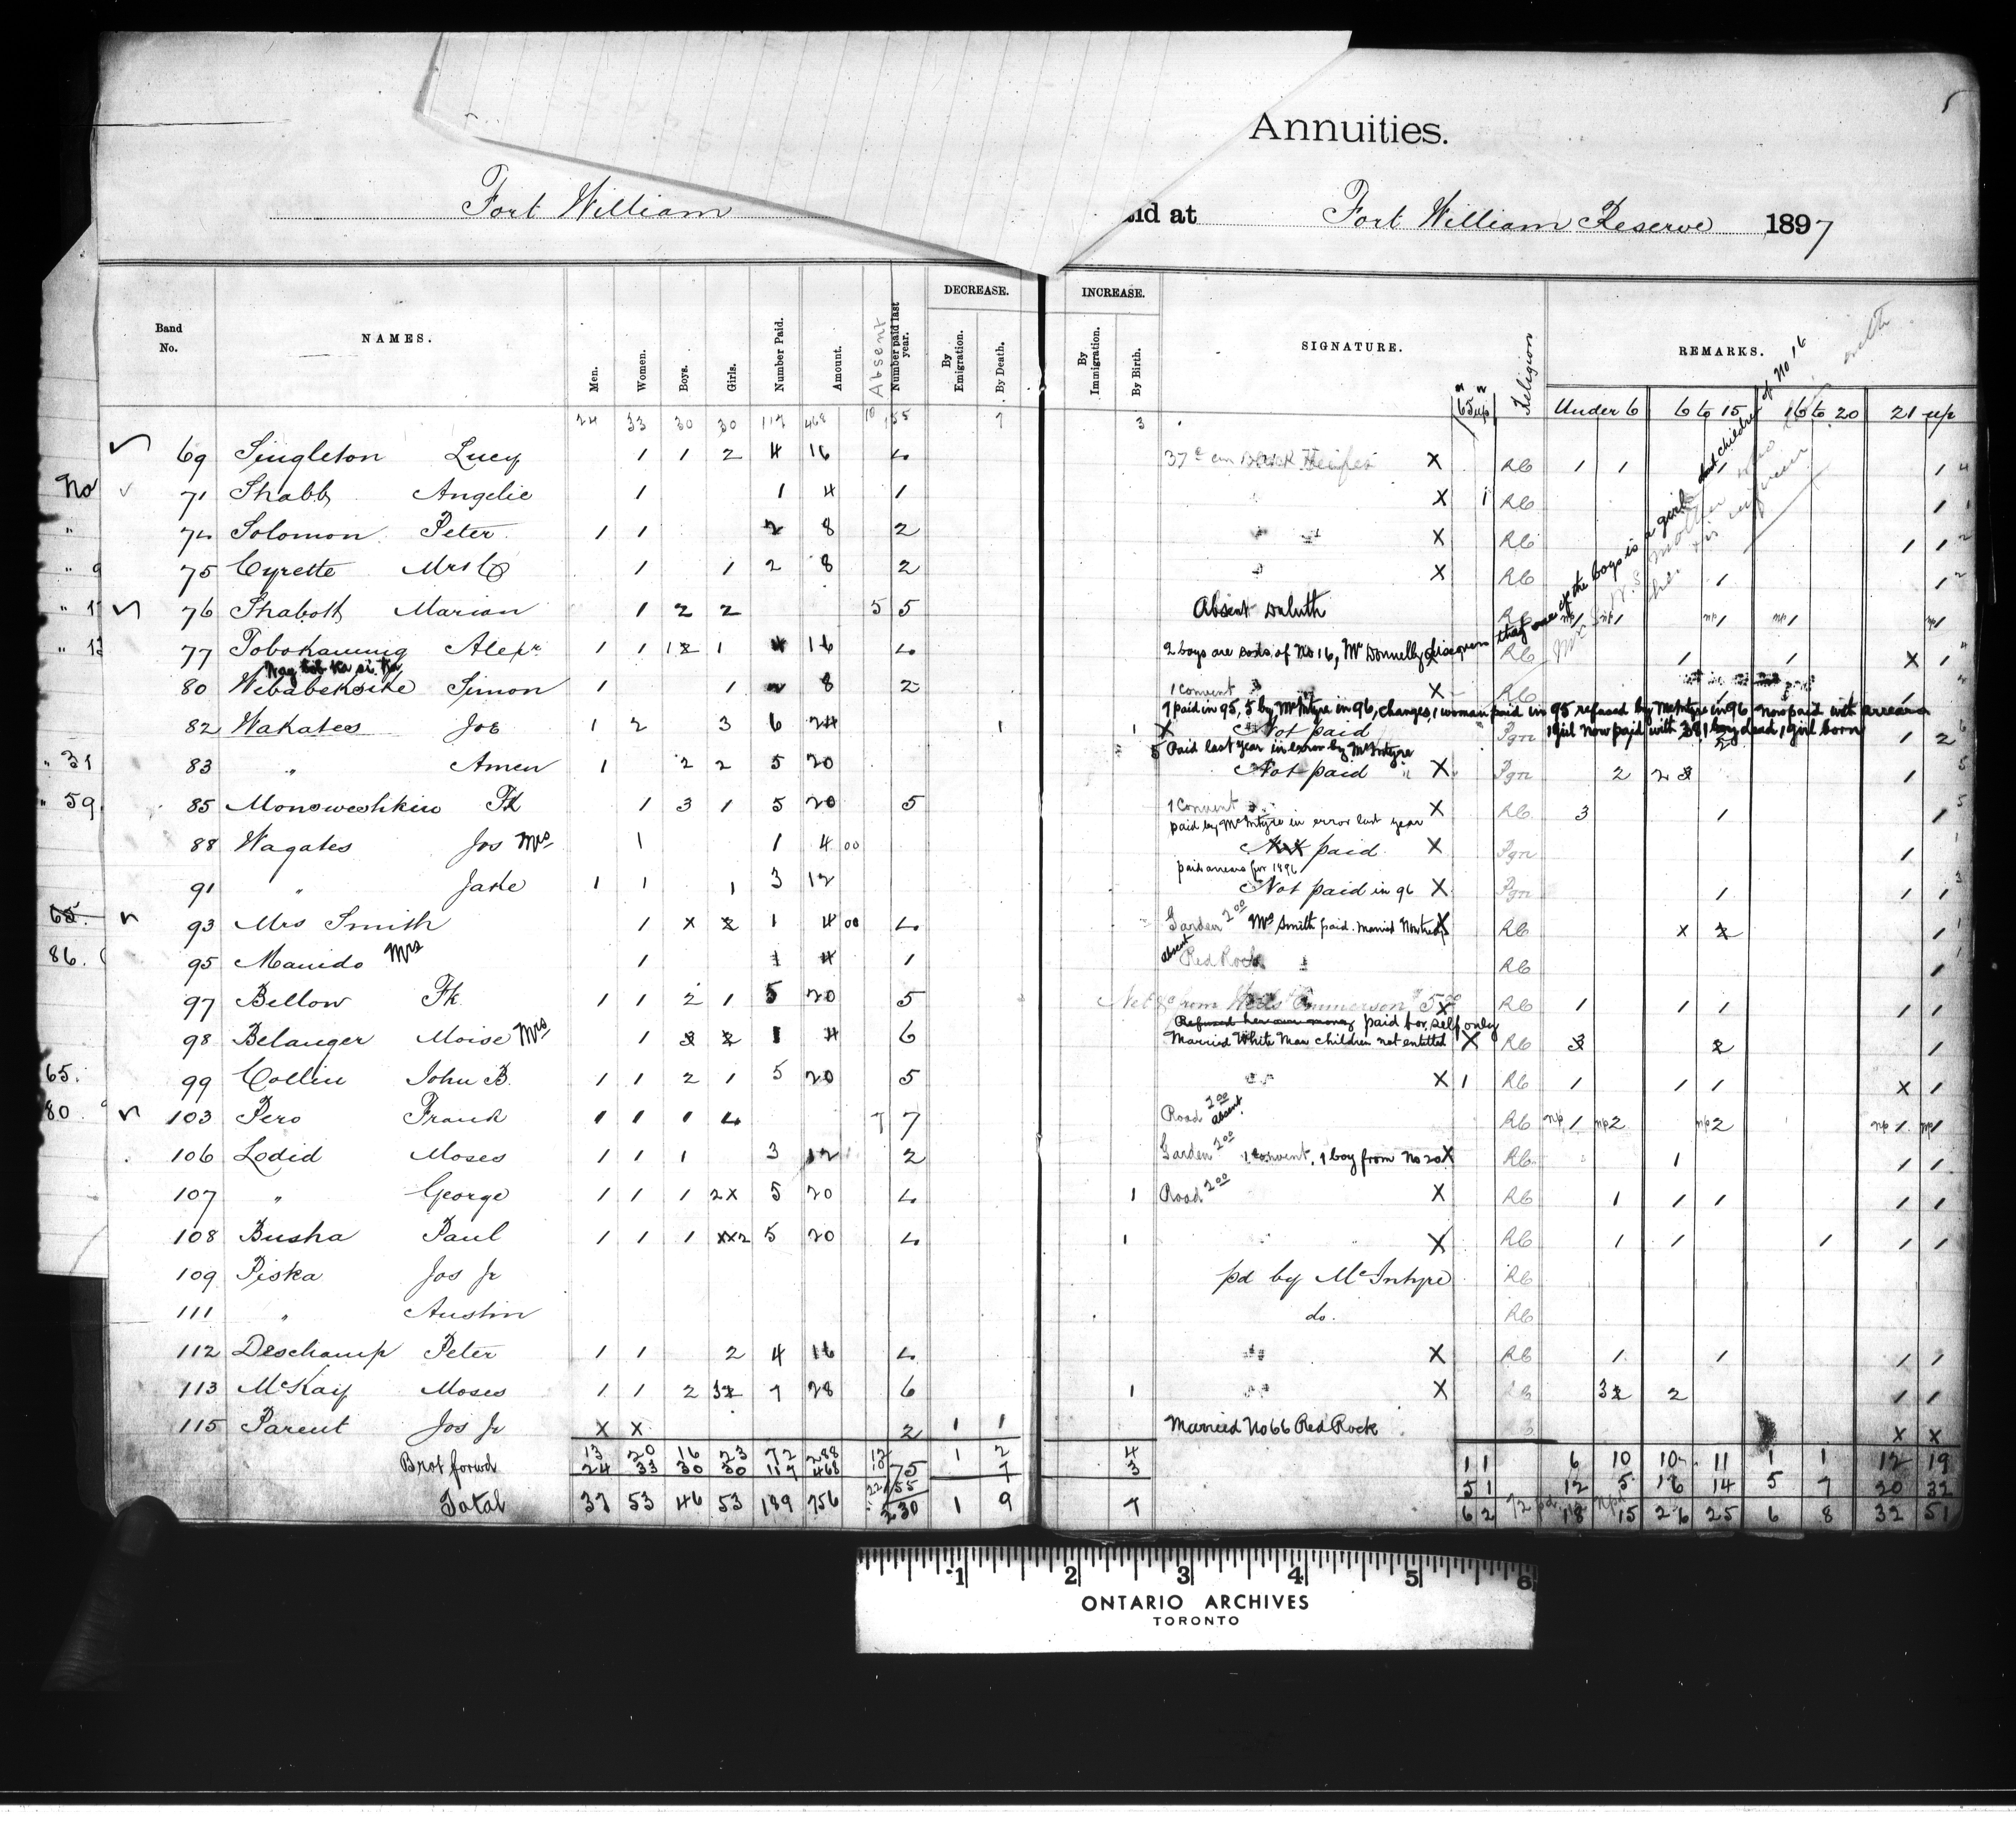 Annuities.
Fort William
id at Fort William Reserve 1897
DECREASE. INCREASE.
Band No. NAMES. Men. Women. Boys. Girls. Number Paid. Amount. Absent Number paid last year. By Emigration. By Death. By Immigration. By Birth. SIGNATURE. 65 up Religion REMARKS.
Under 6 6 to 15 16 to 20 21 up
24 33 30 30 117 468 10 155 7 3
69 Singleton Lucy 1 1 2 4 16 4 X RC 1 1 1 4
No 71 Shabb Angelic 1 1 4 1 X 1 RC 1 1
" 74 Solomon Peter 1 1 2 8 2 X RC 1 1 2
" 75 Cyrette Mrs 1 1 2 8 2 X RC 1 1 2
" 76 Shabott Marian 1 2 2 5 5 Absent Duluth RC np1 np1 np1 np1 np1
" 77 Tobokaming Alexr 1 1 1 1 4 16 4 2 boys are sons of No 16, Mr Donnelly RC 1 1 X 1
that one of the boys is a girl children of No 16
80 Simon 1 1 8 2 1 Convent X RC
7 paid in 95, 5 by McIntyre in 96, changes, 1 woman paid in 95 refused by McIntyre in 96 Now paid with arrears
82 Wakatees Joe 1 2 3 6 24 1 1 X Not paid Pgn 1 girl now paid with 1 boy dead 1 girl born 1 2 6
5 Paid last year in error by McIntyre
" 31 83 " Amen 1 2 2 5 20 Not paid X Pgn 2 2 1 5
" 59 85 Monoweshkin Fk 1 3 1 5 20 5 1 Convent X RC 3 1 1 5
paid by McIntyre in error last year
88 Wagates Jos Mrs 1 1 4 00 Not paid X Pgn 1 1
paid arrears for 1896
91 " Jake 1 1 1 3 12 Not paid in 96 X Pgn 1 1 1 3
65. 93 Mrs Smith 1 X 2 1 4 00 4 Garden 2 00 Mrs Smith paid. X RC X 2 1 1
86. 95 Manido Mrs 1 1 4 1 absent Red Rock RC 1 1
97 Bellow Fk. 1 1 2 1 5 20 5 X RC 1 1 1 1 1
Refused her own money paid for self only
98 Belanger Moise Mrs 1 3 2 1 4 6 Married White Man children not entitled X RC 3 2 1
65. 99 Collin John B. 1 1 2 1 5 20 5 X 1 RC 1 1 1 X 1
80 103 Pero Frank 1 1 1 4 7 7 Road 2 00 absent. RC np 1 np2 np2 np 1 np1
106 Lodid Moses 1 1 1 3 12 2 Garden 2 00 1 Convent, 1 boy from No 20 X RC 1 1 1
107 " George 1 1 1 2X 5 20 4 1 Road 2 00 X RC 1 1 1 1 1
108 Busha Paul 1 1 1 XX2 5 20 4 1 X RC 1 1 1 1 1
109 Piska Jos Jr pd by McIntyre RC
111 " Austin do. RC
112 Deschamp Peter 1 1 2 4 16 4 X RC 1 1 1 1
113 McKay Moses 1 1 2 32 7 28 6 1 X 32 2 1 1
115 Parent Jos Jr X X 2 1 1 Married No 66 Red Rock X X
13 20 16 23 72 288 12 75 1 2 4 1 1 6 10 10 11 1 1 12 19
Brot forwd 24 33 30 30 117 468 10 155 7 3 5 1 12 5 16 14 5 7 20 32
Total 37 53 46 53 189 756 22 230 1 9 7 6 2 18 15 26 25 6 8 32 51
1 2 3 4 5 6
ONTARIO ARCHIVES
TORONTO